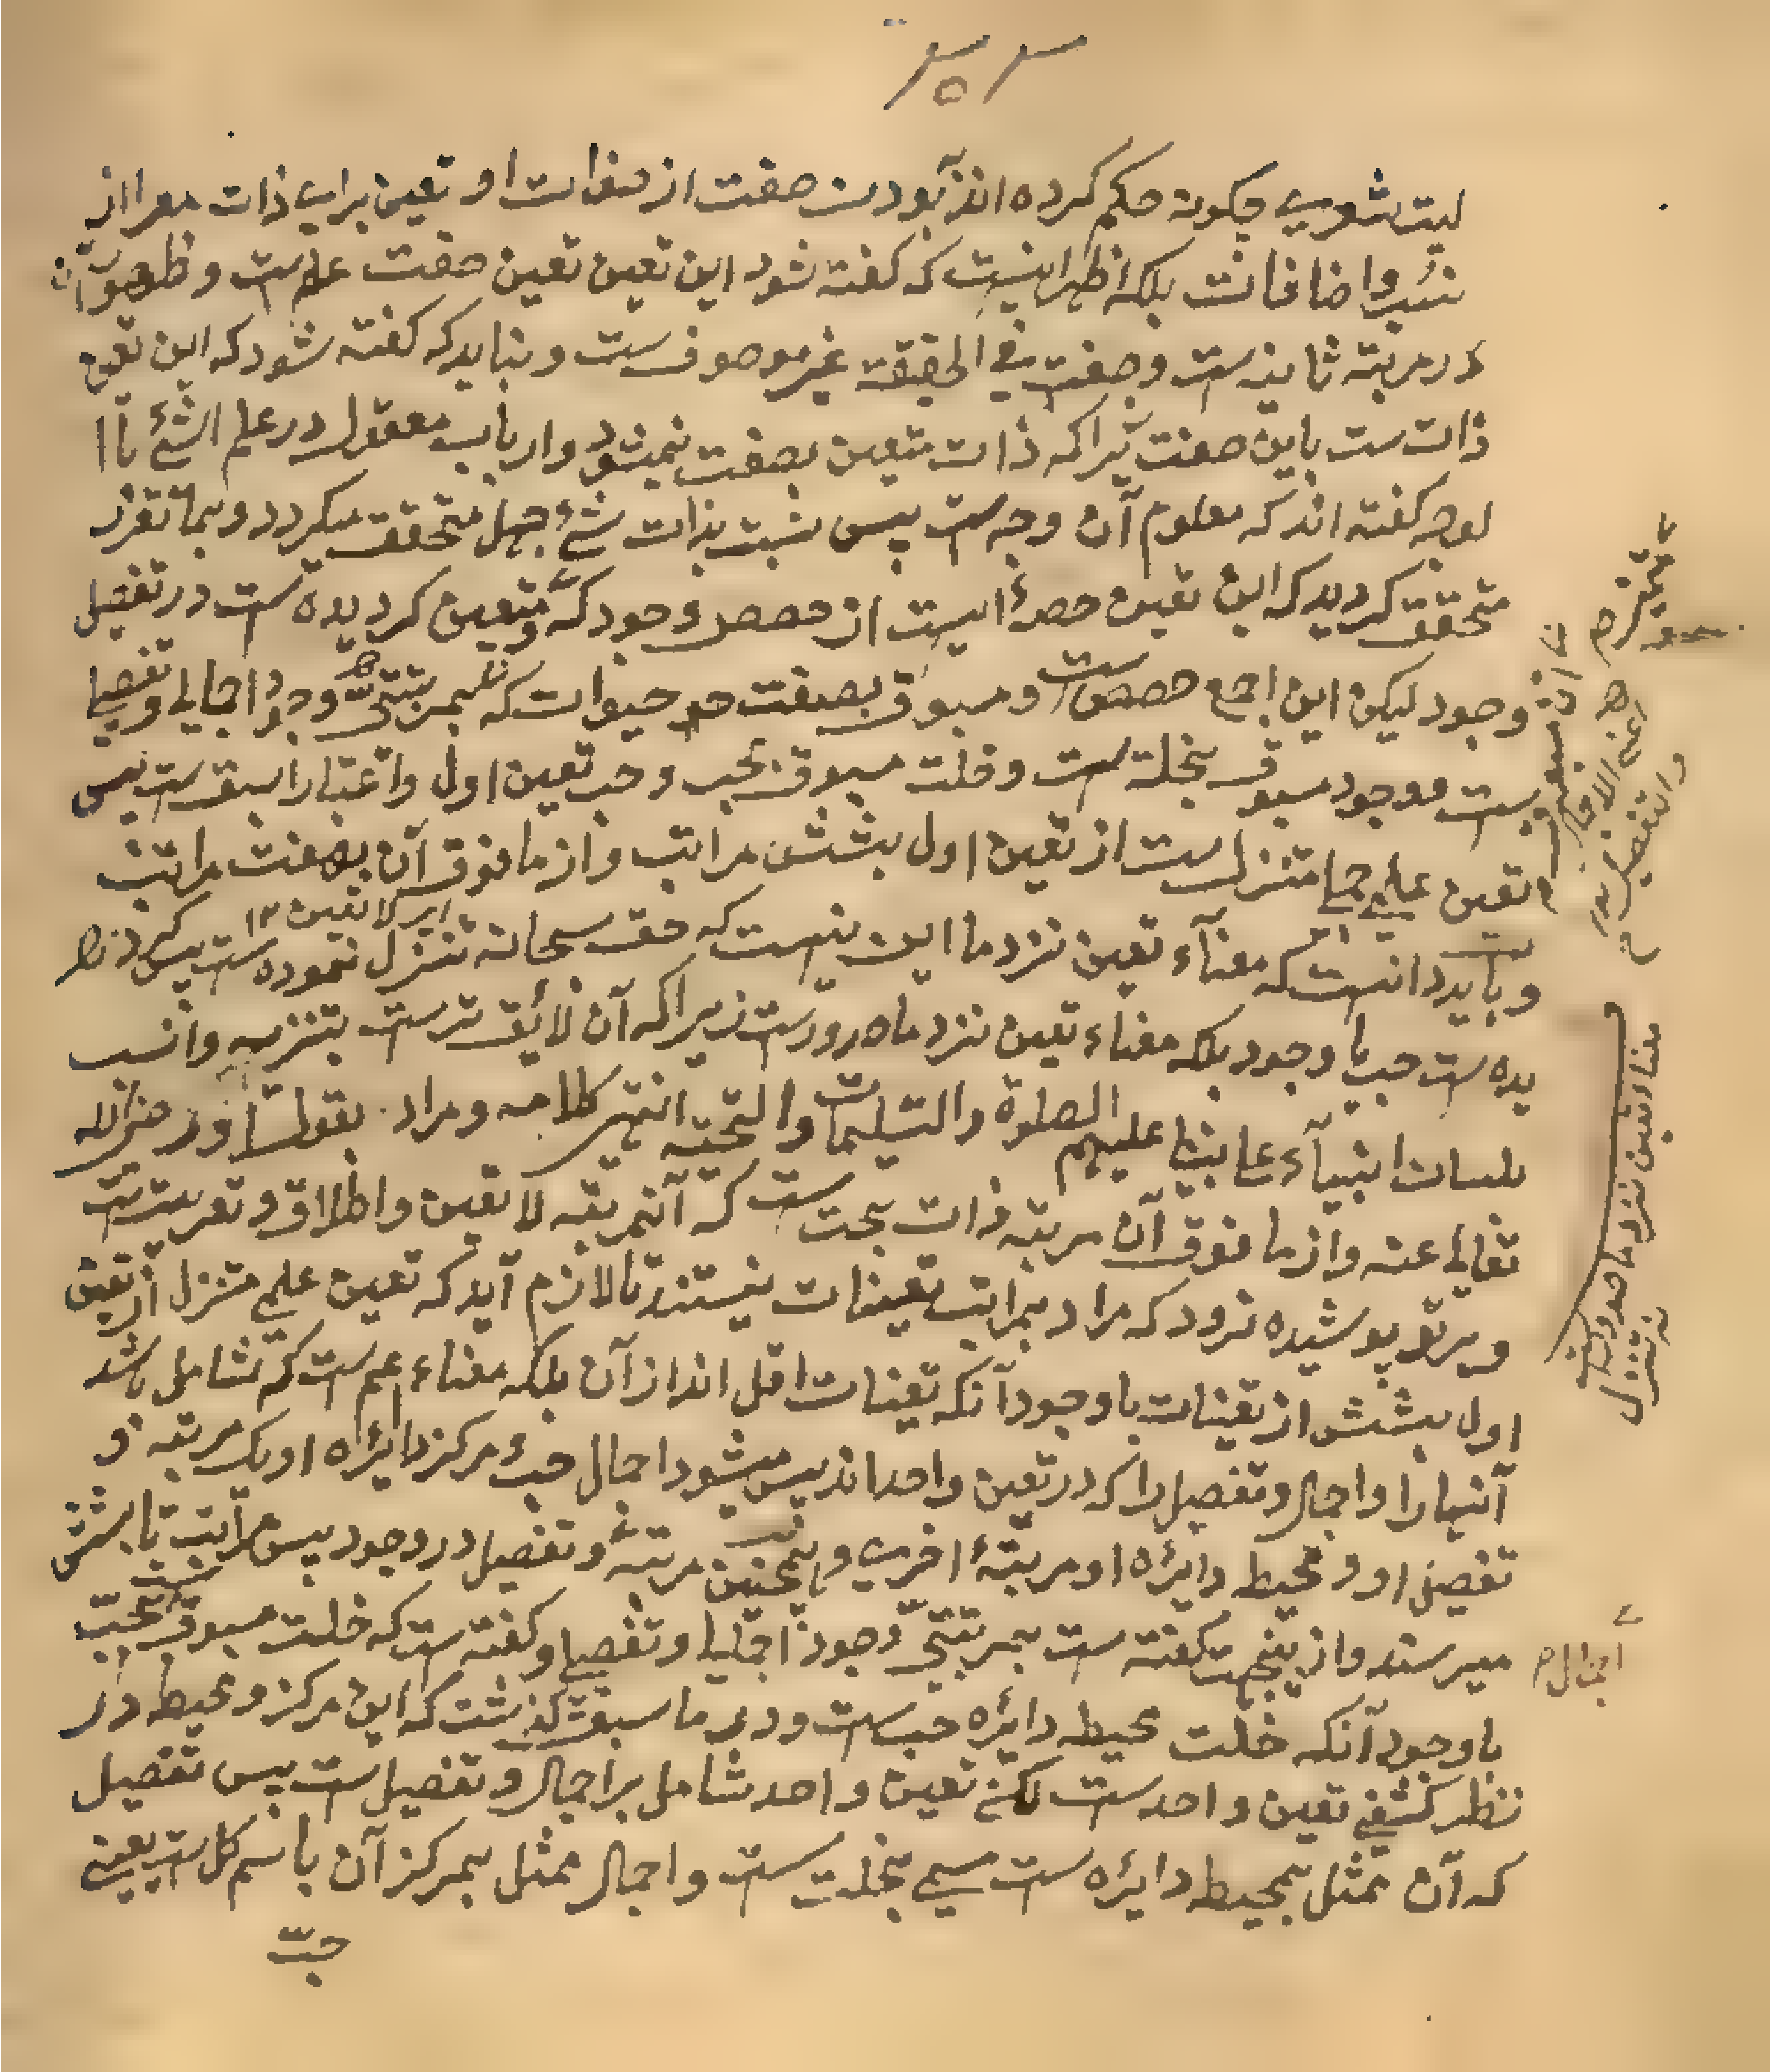 ليت شعری چکونه حکم کرده اند بودن صفت از صفات او تعین برای ذات معرا از
نسب و اضافات بلکه اظهر اینست که کفته شود این تعین تعین صفت علم ست و ظهور آن
در مرتبه ثانیه ست و صفت فی الحقیقة غیر موصوف ست و نباید که کفته شود که این تعین
ذات ست باین صفت زیرا که ذات متعین بصفت نمیشود و ارباب معقول در علم الشئ با ا
لوجه کفته اند که معلوم آن وجه ست پس نسبت بذات شئ جهل متحقق میکردد و بما تقرر
متحقق کردید که این تعین حصۀ ایست از حصص وجود که متعین کردیده ست در تفصیل
وجود لیکن این اجمع حصص ست و مسبوق بصفت حیوات که بمرتبتی وجود اجمالی و تفصیلی
ست و وجود مسبوق بخلة ست و خلت مسبوق بحب و حب تعین اول و اعتبار اسبق ست پس
تعین علمی جملی متنزل ست از تعین اول بشش مراتب و از ما فوق آن بهفت مراتب
ای لا تعین ١٢
و باید دانست که معناء تعین نزد ما این نیست که حق سبحانه تنزل نموده ست پس کرد
یده ست حب یا وجود بلکه معناء تعین نزد ما صدور ست زیرا که آن لائق تر ست بتنزیه و انسب
بلسان انبیآء علی نبینا علیهم الصلوة والتسلیمات والتحیة انتهی کلامه و مراد بقول او رضی الله
تعالی عنه و از ما فوق آن مرتبه ذات بحت ست که آنمرتبه لا تعین و اطلاق و تعریت ست
و بر تو پوشیده نرود که مراد بمراتب تعینات نیستند تا لازم آید که تعین علمی متنزل از تعین
اول بشش از تعینات با وجود آنکه تعینات اقل اند از آن بلکه معناء اعم ست که شامل باشد
آنها را و اجمال و تفصیل را که در تعین واحد اند پس میشود اجمال حب و مرکز دایره او یک مرتبه و
تفصیل او و محیط دایره او مرتبۀ اخری و همچنین مرتبۀ و تفصیل در وجود پس مراتب تا بشش
میرسند و از ینجهت کفته ست بمرتبتی وجود اجمالیا و تفصیلیا و کفته ست که خلت مسبوق بحب
با وجود آنکه خلت محیط دایره حب ست و در ما سبق کذشت که این مرکز و محیط در
نظر کشفی تعین واحد ست لکن تعین واحد شامل بر اجمال و تفصیل ست پس تفصیل
که آن ممثل بمحیط دایره ست مسمی بخلت ست و اجمال ممثل بمرکز آن باسم کل ست یعنی
حب
اعنی الاجمال
والتفصیل
معناء تعین نزد ما صدور ست
نه تنزل
اجمال م